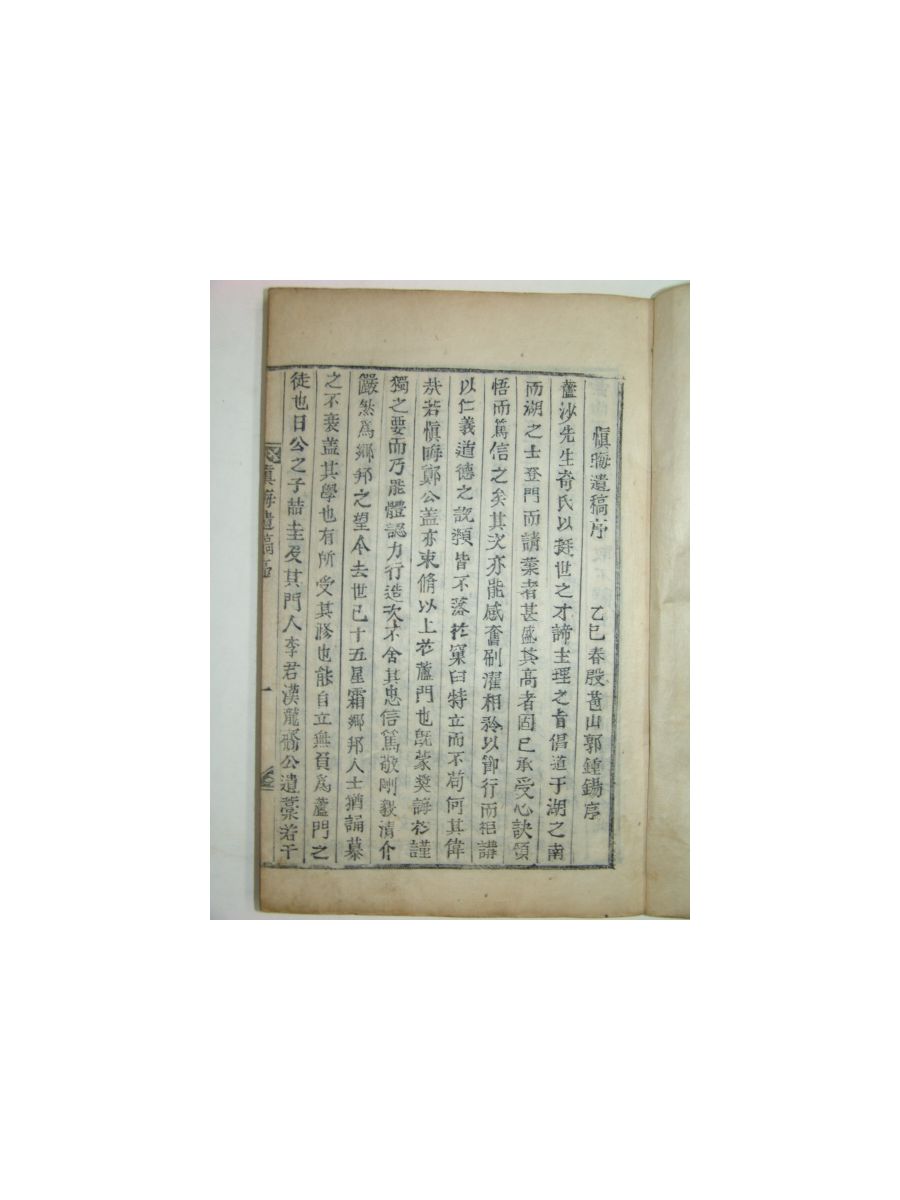 愼晦遺稿序 乙巳春殷 山郭鍾錫序
蘆沙先生奇氏以挺世之才諦主理之旨倡道于湖之南
而湖之士登門而請業者甚盛其高者固已承受心訣領
悟而篤信之矣其次亦能感奮刷濯相矜以飭行而 講
以仁義道德之說類皆不落於窠臼特立而不苟何其偉
哉若愼晦鄭公盖亦束脩以上於蘆門也旣蒙奬誨於謹
獨之要而乃能體認力行造次不舍其忠信篤敬剛毅清介
嚴然爲鄉邦之望今去世已十五星霜鄉邦人士猶誦慕
之不衰盖其學也有所受其修也能自立無負爲蘆門之
徒也日公之子喆圭及其門人李君漢龍齎公遺藁若干
愼晦遺稿序 一